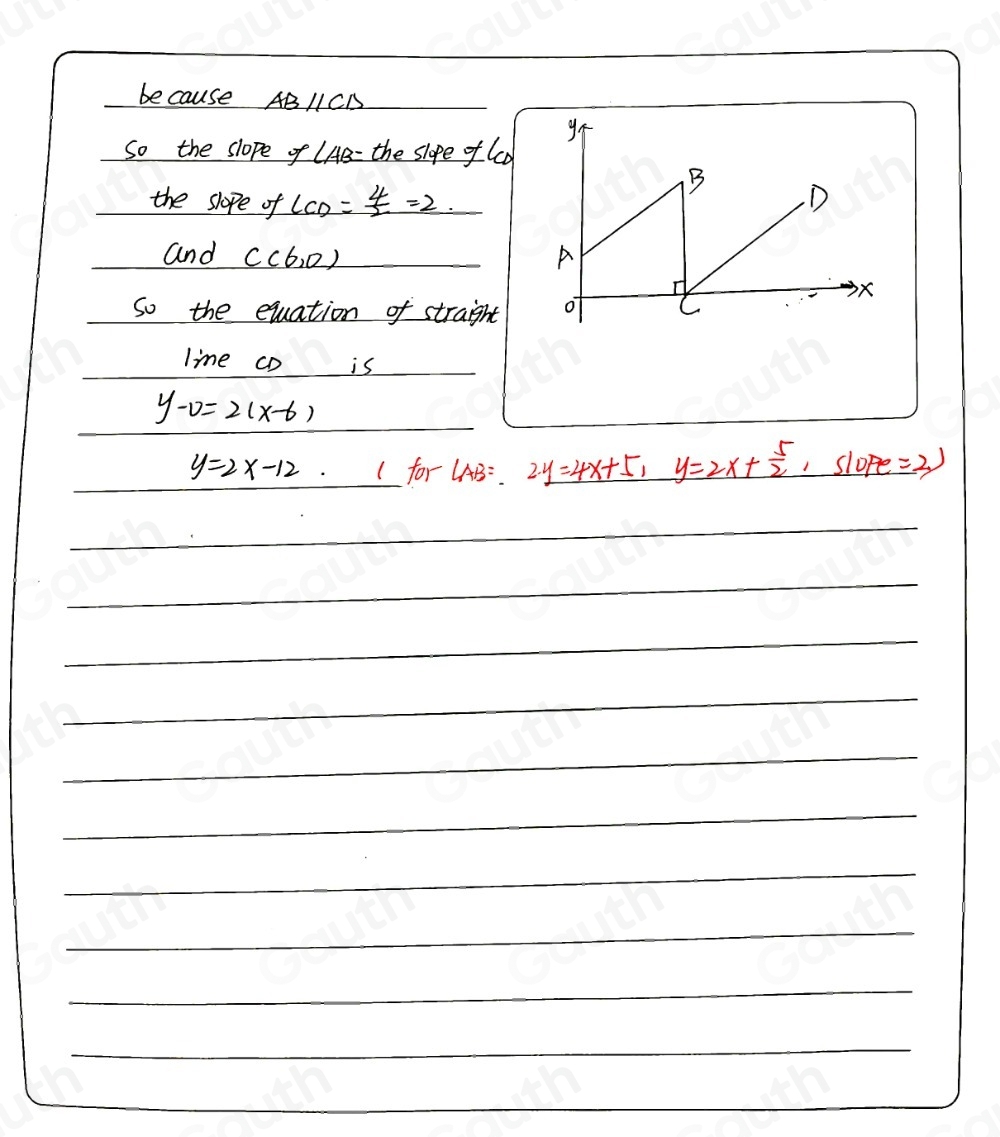 because AB//CD
So the slope of LAB = the slope of LCD
the slope of LCD = 4/2 = 2.
and C(6,0)
So the equation of straight
line CD is
y-0=2(x-6)
y=2x-12. (for LAB: 2y=4x+5, y=2x+5/2, slope=2)
y
B
D
A
O
C
x
Gauth